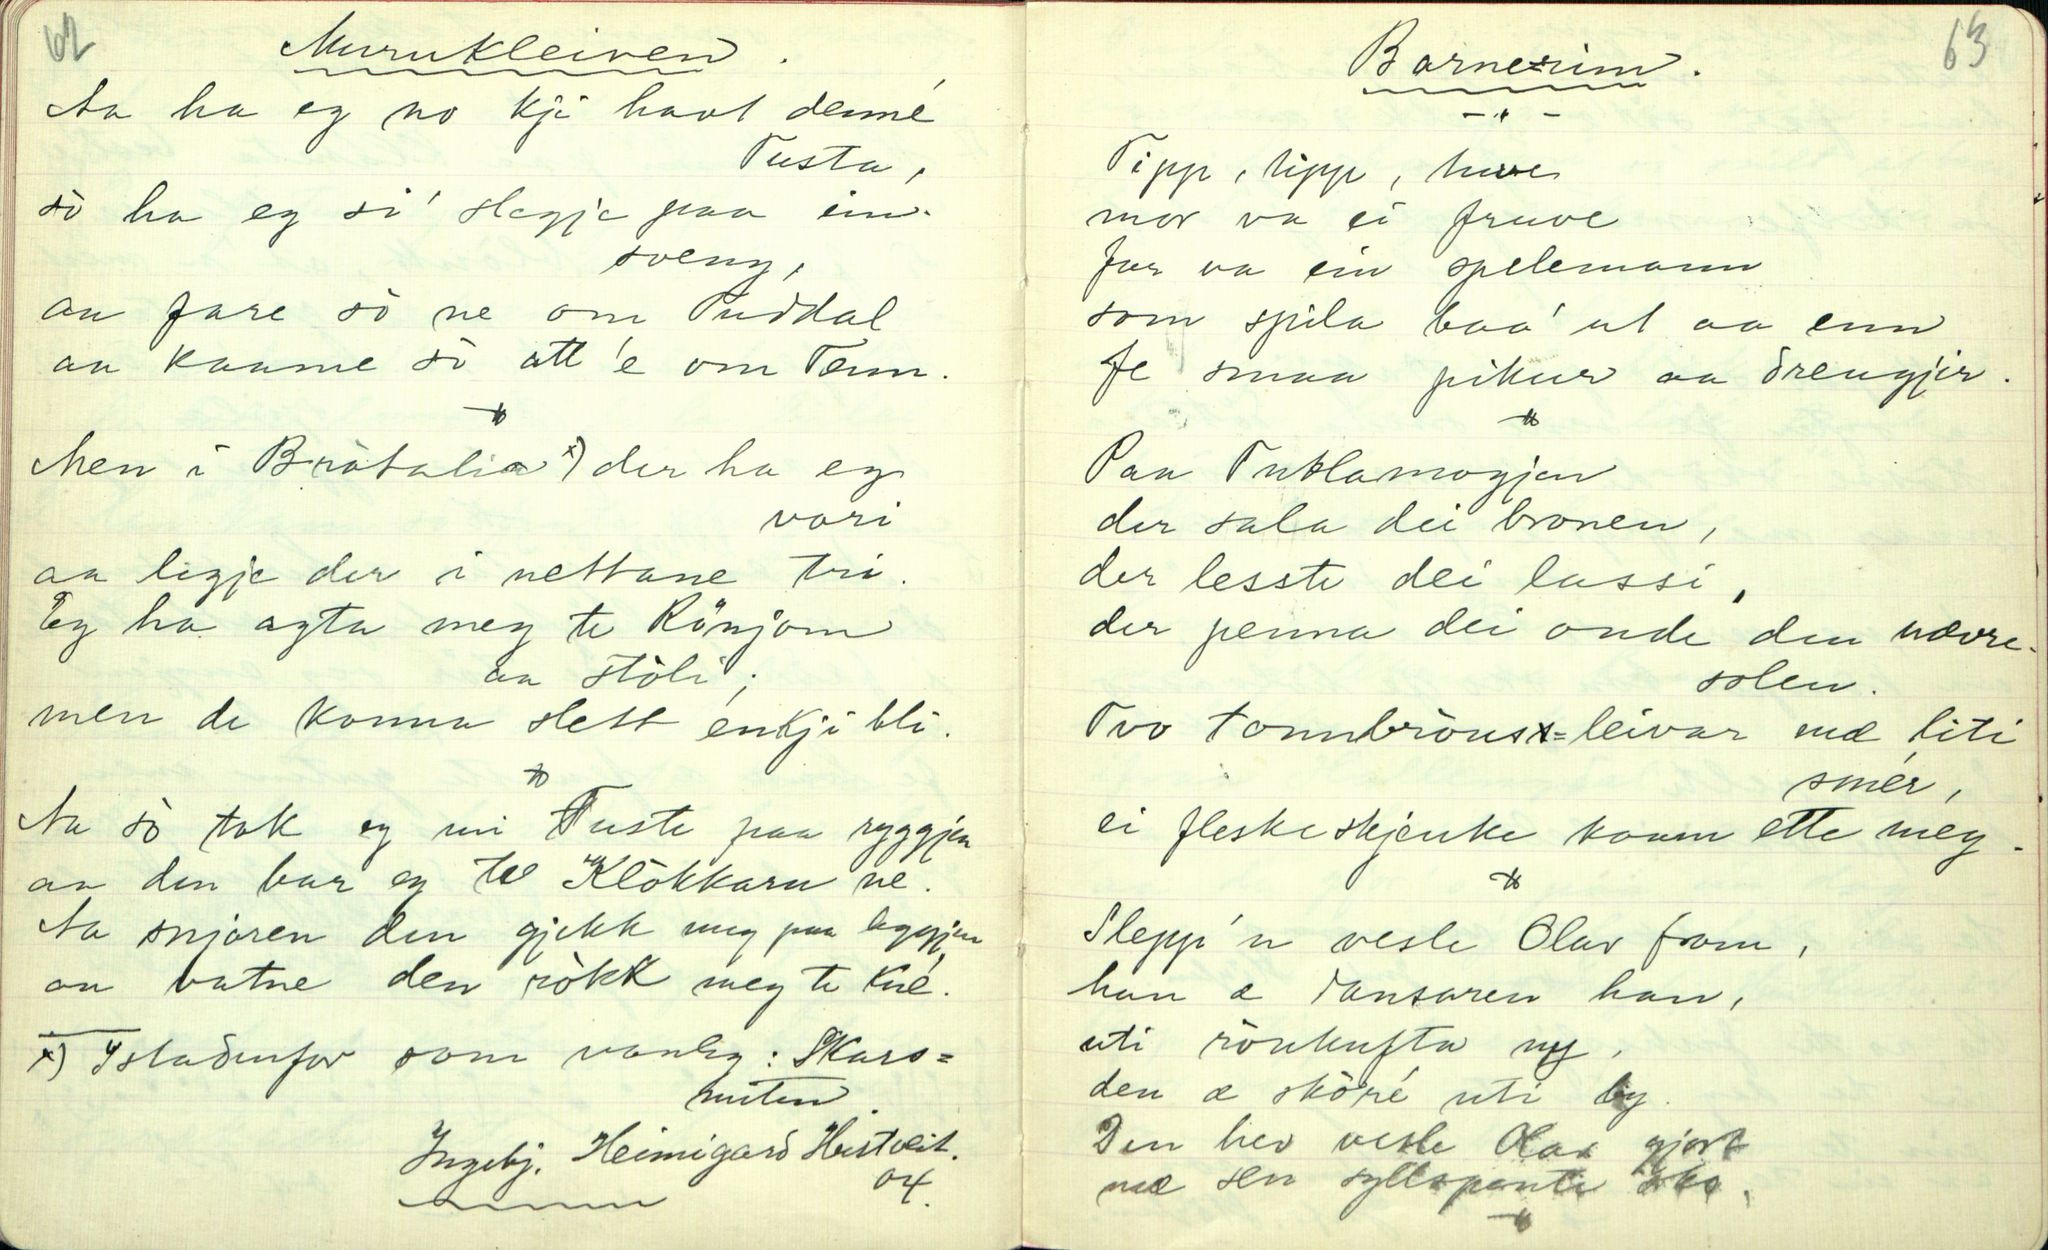 62
Murukleiven.
Aa ha eg no kji havt denné
Tusta,
sò ha eg si' slegje paa ein
sveng,
aa fare sò ne om Tuddal
aa kaame sò att 'e om Tenn.
Men i Bròtalia x) der ha eg
vori
aa ligje der i nettane tri.
Eg ha agta meg te Rönjom
aa stöli;
men de konna slett enkji bli.
Aa sò tok eg mi Tuste paa ryggjen
aa den bar eg te Klòkkaru ne.
Aa snjoren den gjekk meg paa leggjen
aa vatne den ròkk meg te kné.
x) Istadenfor som vanleg: Skars=
nuten.
Ingebj. Heimigard Hestveit.
04.
63
Barnerim.
Tipp, tipp, tuve
mor va ei fruve
far va ein spelemann
som spila baa' ut aa enn
fe smaa pikur aa drengjir.
Paa Tuklamogjen
der sala dei bronen,
der lesste dei lassi,
der penna dei onde den nævre-
solen.
Tvo tonnbròus=leivar mæ liti
smér,
ei fleskeskjenke kaam ette meg.
Slepp 'n vesle Olav fram,
han æ dansaren han,
uti ròukufta ny,
den æ skòré uti by.
Den hev vesle Olav gjort
mæ sen syllspente sko.